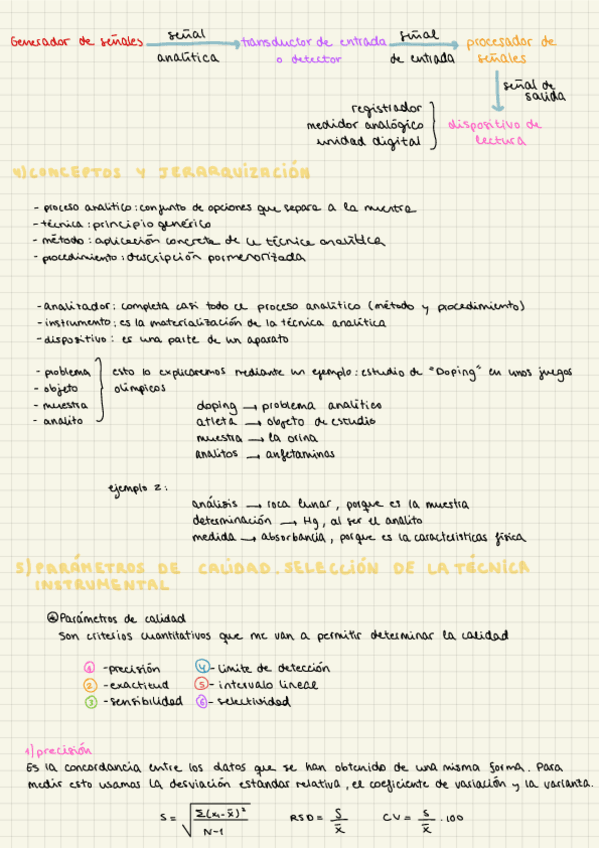 Generador de señales señal analítica transductor de entrada o detector señal de entrada procesador de señales
señal de salida
registrador
medidor analógico
unidad digital
dispositivo de lectura
4) CONCEPTOS Y JERARQUIZACIÓN
- proceso analítico: conjunto de opciones que separa a la muestra
- técnica: principio genérico
- método: aplicación concreta de la técnica analítica
- procedimiento: descripción pormenorizada
- Analizador: completa casi todo el proceso analítico (método y procedimiento)
- instrumento: es la materialización de la técnica analítica
- dispositivo: es una parte de un aparato
- problema
- objeto
- muestra
- analito
esto lo explicaremos mediante un ejemplo: estudio de "Doping" en unos juegos
olímpicos
doping → problema analítico
atleta → objeto de estudio
muestra → la orina
analitos → anfetaminas
ejemplo 2:
análisis → roca lunar, porque es la muestra
determinación → Hg, al ser el analito
medida → absorbancia, porque es la características física
5) PARÁMETROS DE CALIDAD. SELECCIÓN DE LA TÉCNICA
INSTRUMENTAL
Parámetros de calidad
Son criterios cuantitativos que me van a permitir determinar la calidad
1 - precisión 4 - limite de detección
2 - exactitud 5 - intervalo lineal
3 - sensibilidad 6 - selectividad
1) precisión
Es la concordancia entre los datos que se han obtenido de una misma forma. Para
medir esto usamos la desviación estandar relativa, el coeficiente de variación y la varianta.
S = √(Σ(xi - x̄)² / N-1) RSD = S / x̄ CV = S / x̄ · 100